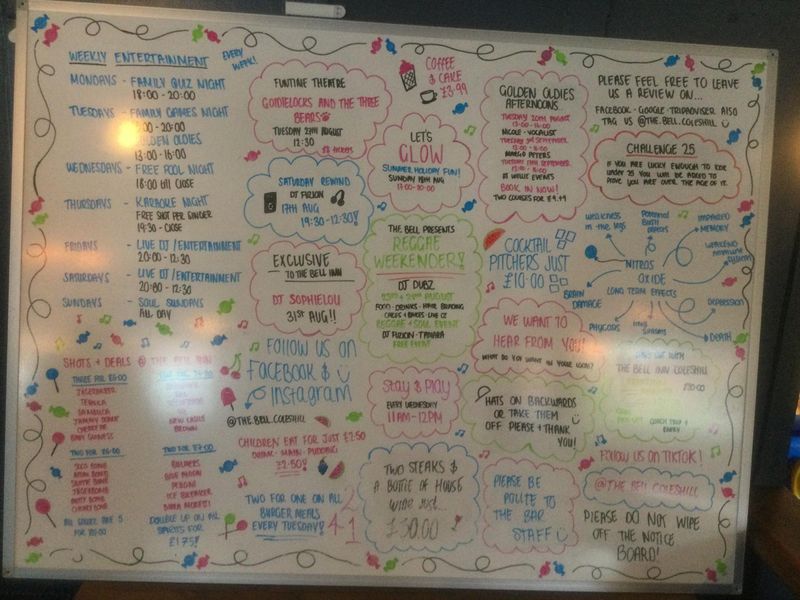 WEEKLY ENTERTAINMENT EVERY WEEK!
MONDAYS - FAMILY QUIZ NIGHT
18:00 - 20:00
TUESDAYS - FAMILY GAMES NIGHT
- 20:00
OLDIES
13:00 - 16:00
WEDNESDAYS - FREE POOL NIGHT
18:00 till CLOSE
THURSDAYS - KARAOKE NIGHT
FREE SHOT PER SINGER
19:30 - CLOSE
FRIDAYS - LIVE DJ/ENTERTAINMENT
20:00 - 12:30
SATURDAYS - LIVE DJ/ENTERTAINMENT
20:00 - 12:30
SUNDAYS - SOUL SUNDAYS
ALL DAY
SHOTS + DEALS @ THE BELL INN
THREE FOR
JÄGERBOMB
TEQUILA
SAMBUCA
BABY GUINNESS
NEW CASTLE
BROWN
TWO FOR
TWO FOR £7.00
JÄGERBOMB
CHERRY BOMB
BULMERS
PERONI
DOUBLE UP ON ALL
SPIRITS FOR
£1.75!
FUNTIME THEATRE
GOLDIELOCKS AND THE THREE
BEARS
TUESDAY 27TH AUGUST
12:30
SATURDAY REWIND
DJ FUZION
17TH AUG
19:30 - 12:30!
EXCLUSIVE
TO THE BELL INN
DJ SOPHIELOU
31ST AUG!!
FOLLOW US ON
FACEBOOK &
instagram
@THE.BELL.COLESHILL
CHILDREN EAT FOR JUST £2.50
DRINK - MAIN - PUDDING
£2.50!
TWO FOR ONE ON ALL
BURGER MEALS
EVERY TUESDAY!
2
4
1
COFFEE
& CAKE
£3.99
LET'S
GLOW
SUMMER HOLIDAY FUN!
SUNDAY 18TH AUG
17:00 - 20:00
THE BELL PRESENTS
REGGAE
WEEKENDER!
DJ DUBZ
23RD + 24TH AUGUST
FOOD - DRINKS - HAIR BRAIDING
REGGAE + SOUL EVENT
DJ FUZION - TAMARA
FREE EVENT
STAY & PLAY
EVERY WEDNESDAY
11AM - 12PM
TWO STEAKS &
A BOTTLE OF HOUSE
WINE JUST...
£30.00
GOLDEN OLDIES
AFTERNOONS...
TUESDAY 20TH AUGUST
13:00 - 16:00
NICOLE - VOCALIST
TUESDAY 3RD SEPTEMBER
13:00 - 16:00
MARGO PETERS
13:00 - 16:00
BOOK IN NOW!
TWO COURSES FOR £9.99
COCKTAIL
PITCHERS JUST
£10.00
WE WANT TO
HEAR FROM YOU!
WHAT DO YOU WANT IN YOUR LOCAL?
HATS ON BACKWARDS
OR TAKE THEM
OFF PLEASE & THANK
YOU!
PLEASE BE
POLITE TO
THE BAR
STAFF
PLEASE FEEL FREE TO LEAVE
US A REVIEW ON...
FACEBOOK - GOOGLE - TRIPADVISER ALSO
TAG US @THE.BELL.COLESHILL
CHALLENGE 25
IF YOU ARE LUCKY ENOUGH TO LOOK
UNDER 25 YOU WILL BE ASKED TO
PROVE YOU ARE OVER THE AGE OF 18.
WEAKNESS
IN THE LEGS
POTENTIAL
BIRTH
DEFECTS
IMPAIRED
MEMORY
NITROS
OXIDE
LONG TERM EFFECTS
BRAIN
DAMAGE
DEPRESSION
DEATH
THE BELL INN COLESHILL
FOLLOW US ON TIKTOK!
@THE BELL COLESHILL
PLEASE DO NOT WIPE
OFF THE NOTICE
BOARD!